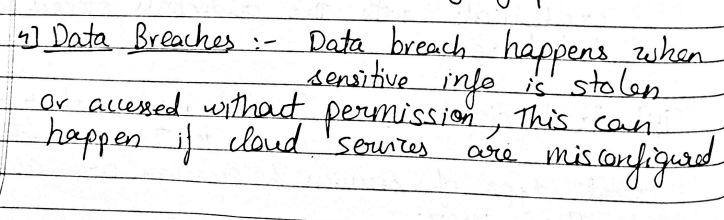 4] Data Breaches :- Data breach happens when
sensitive info is stolen
or accessed without permission, This can
happen if cloud services are misconfigured